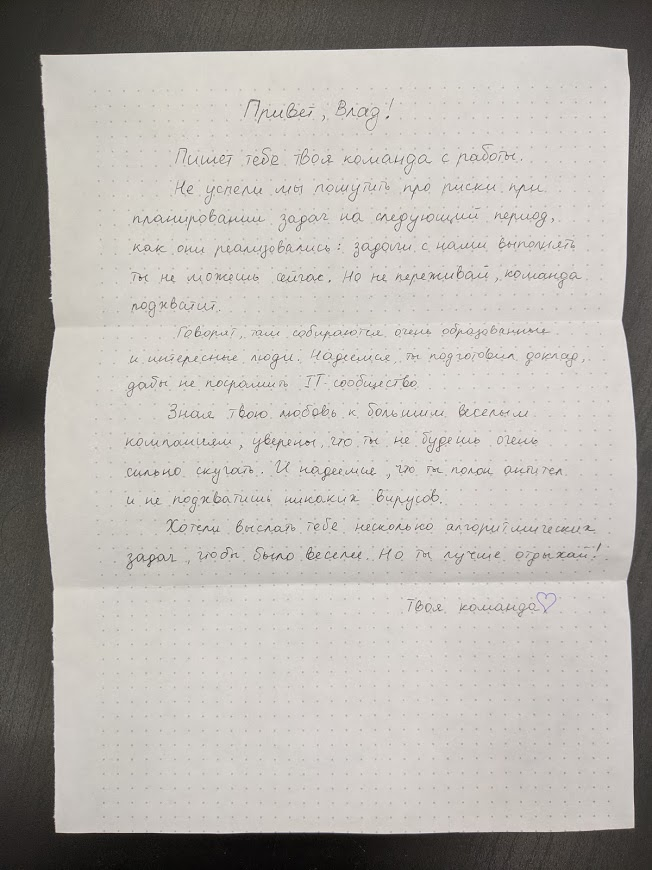 Привет, Влад!
Пишет тебе твоя команда с работы.
Не успели мы пошутить про риски при
планировании задач на следующий период,
как они реализовались: задачи с нами выполнять
ты не можешь сейчас. Но не переживай, команда
подхватит.
Говорят, там собираются очень образованные
и интересные люди. Надеемся, ты подготовил доклад,
дабы не посрамить IT-сообщество.
Зная твою любовь к большим веселым
компаниям, уверены, что ты не будешь очень
сильно скучать. И надеемся, что ты полон антител
и не подхватишь никаких вирусов.
Хотели выслать тебе несколько алгоритмических
задач, чтобы было веселее. Но ты лучше отдыхай!
Твоя команда♡